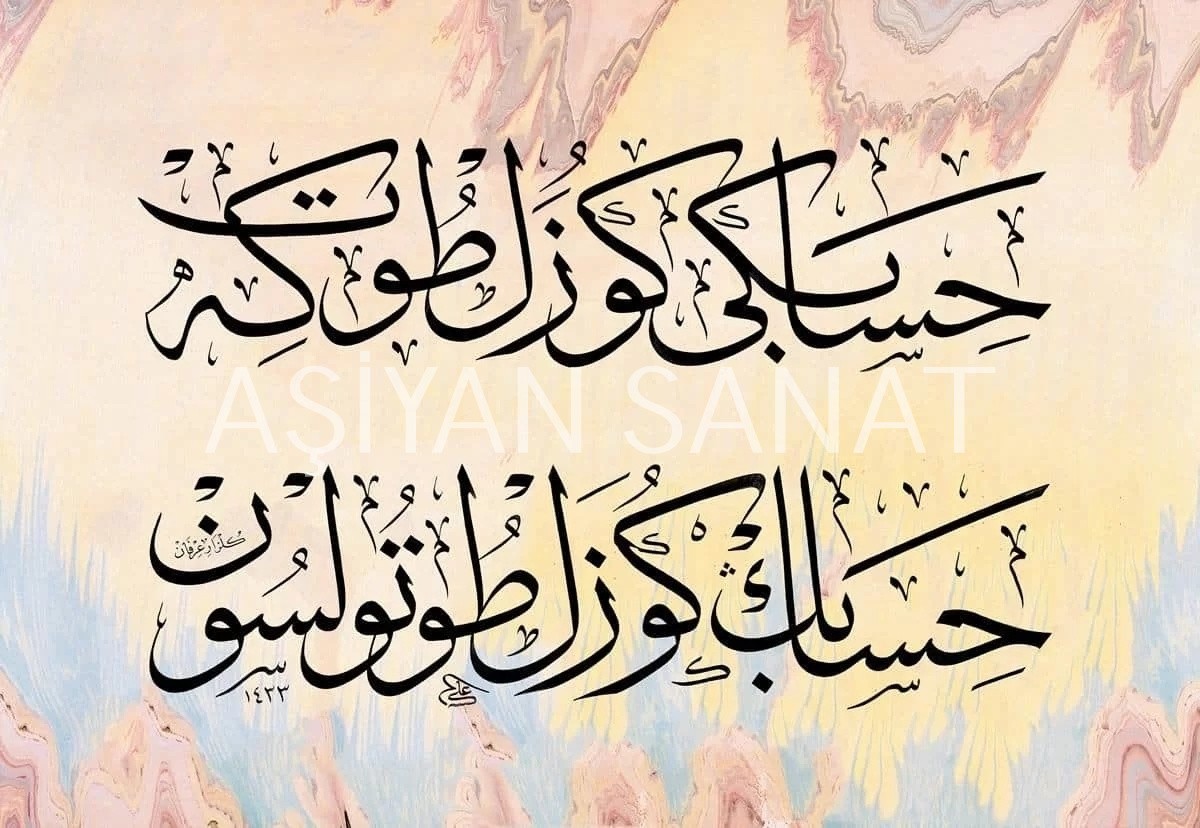 حسابكی كوزل طوت كه
AŞİYAN SANAT
حسابڭ كوزل طوتولسون
كلزار عرفان
١٤٢٣